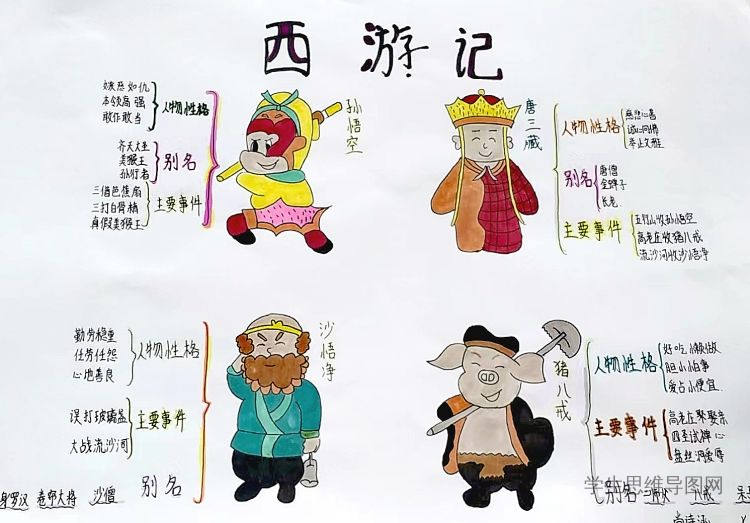 西游记
孙悟空
人物性格
嫉恶如仇
本领高强
敢作敢当
别名
齐天大圣
美猴王
孙行者
主要事件
三借芭蕉扇
三打白骨精
真假美猴王
唐三藏
人物性格
慈悲心善
诚心向佛
举止文雅
别名
唐僧
金蝉子
长老
主要事件
五行山收孙悟空
高老庄收猪八戒
流沙河收沙悟净
沙悟净
人物性格
勤劳稳重
任劳任怨
心地善良
主要事件
误打玻璃盏
大战流沙河
别名
身罗汉 卷帘大将 沙僧
猪八戒
人物性格
好吃懒做
胆小怕事
爱占小便宜
主要事件
高老庄娶亲
四圣试禅心
盘丝洞
别名
八戒
学生思维导图网